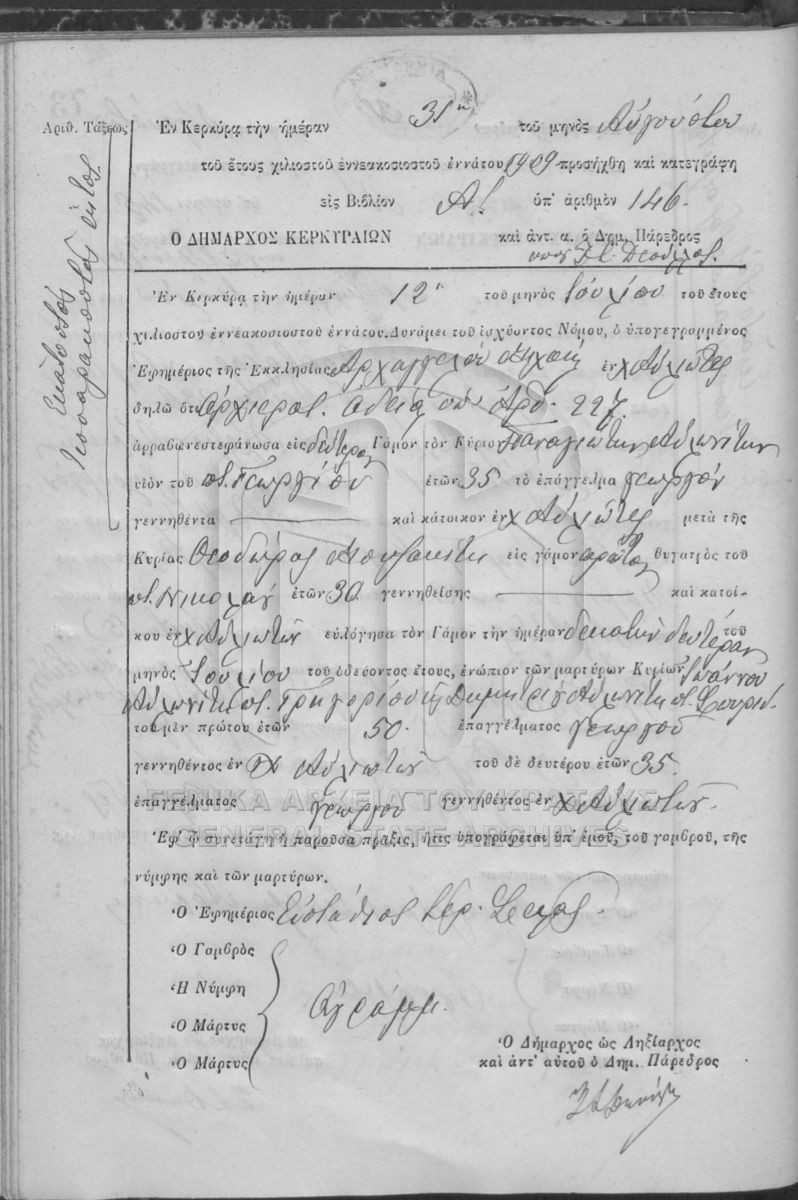 Αριθ. Τάξεως
Ἑκατοστός
τεσσαρακοστός ἕκτος
Ἐν Κερκύρᾳ τὴν ἡμέραν 31ην τοῦ μηνὸς Αὐγούστου
τοῦ ἔτους χιλιοστοῦ ἐννεακοσιοστοῦ ἐννάτου 1909 προσήχθη καὶ κατεγράφη
εἰς Βιβλίον Α! ὑπ' ἀριθμὸν 146.
Ο ΔΗΜΑΡΧΟΣ ΚΕΡΚΥΡΑΙΩΝ καὶ ἀντ. α. ὁ Δημ. Πάρεδρος
Ἐν Κερκύρᾳ τὴν ἡμέραν 12 τοῦ μηνὸς Ἰουλίου τοῦ ἔτους
χιλιοστοῦ ἐννεακοσιοστοῦ ἐννάτου. Δυνάμει τοῦ ἰσχύοντος Νόμου, ὁ ὑπογεγραμμένος
Ἐφημέριος τῆς Ἐκκλησίας Ἀρχαγγέλου Μιχαήλ ἐν χ Αὐλιῶτες
δηλῶ ὅτι ἀρχιερατ. ἀδείᾳ ὑπ' Ἀρθ. 227
ἀρραβωνεστεφάνωσα εἰς δεύτερον Γάμον τὸν Κύριον Παναγιώτην Αὐλωνίτην
υἱὸν τοῦ ποτ. Γεωργίου ἐτῶν 35 τὸ ἐπάγγελμα γεωργόν
γεννηθέντα καὶ κάτοικον ἐν χ Αὐλιῶτες μετὰ τῆς
Κυρίας Θεοδώρας Μουζακίτη εἰς γάμον πρῶτον θυγατρὸς τοῦ
ποτ. Νικολάου ἐτῶν 30. γεννηθείσης καὶ κατοί-
κου ἐν χ Αὐλιωτῶν εὐλόγησα τὸν Γάμον τὴν ἡμέραν δεκάτην δευτέραν τοῦ
μηνὸς Ἰουλίου τοῦ ὁδεύοντος ἔτους, ἐνώπιον τῶν μαρτύρων Κυρίων Ἰωάννου
Αὐλωνίτη ποτ. Γρηγορίου κ Δημητρίου Αὐλωνίτη ποτ. Σπυρίδ.
τοῦ μὲν πρώτου ἐτῶν 50. ἐπαγγέλματος γεωργοῦ
γεννηθέντος ἐν χ Αὐλιωτῶν τοῦ δὲ δευτέρου ἐτῶν 35.
ἐπαγγέλματος γεωργοῦ γεννηθέντος ἐν χ Αὐλιωτῶν.
ΓΕΝΙΚΑ ΑΡΧΕΙΑ ΤΟΥ ΚΡΑΤΟΥΣ
GENERAL STATE ARCHIVES
Ἐφ' ᾧ συνετάγη ἡ παροῦσα πρᾶξις, ἥτις ὑπογράφεται ὑπ' ἐμοῦ, τοῦ γαμβροῦ, τῆς
νύμφης καὶ τῶν μαρτύρων.
Ὁ Ἐφημέριος Εὐστάθιος Ἱερ.
Ὁ Γαμβρὸς
Ἡ Νύμφη
Ἀγράμμ.
Ὁ Μάρτυς
Ὁ Μάρτυς
Ὁ Δήμαρχος ὡς Ληξίαρχος
καὶ ἀντ' αὐτοῦ ὁ Δημ. Πάρεδρος